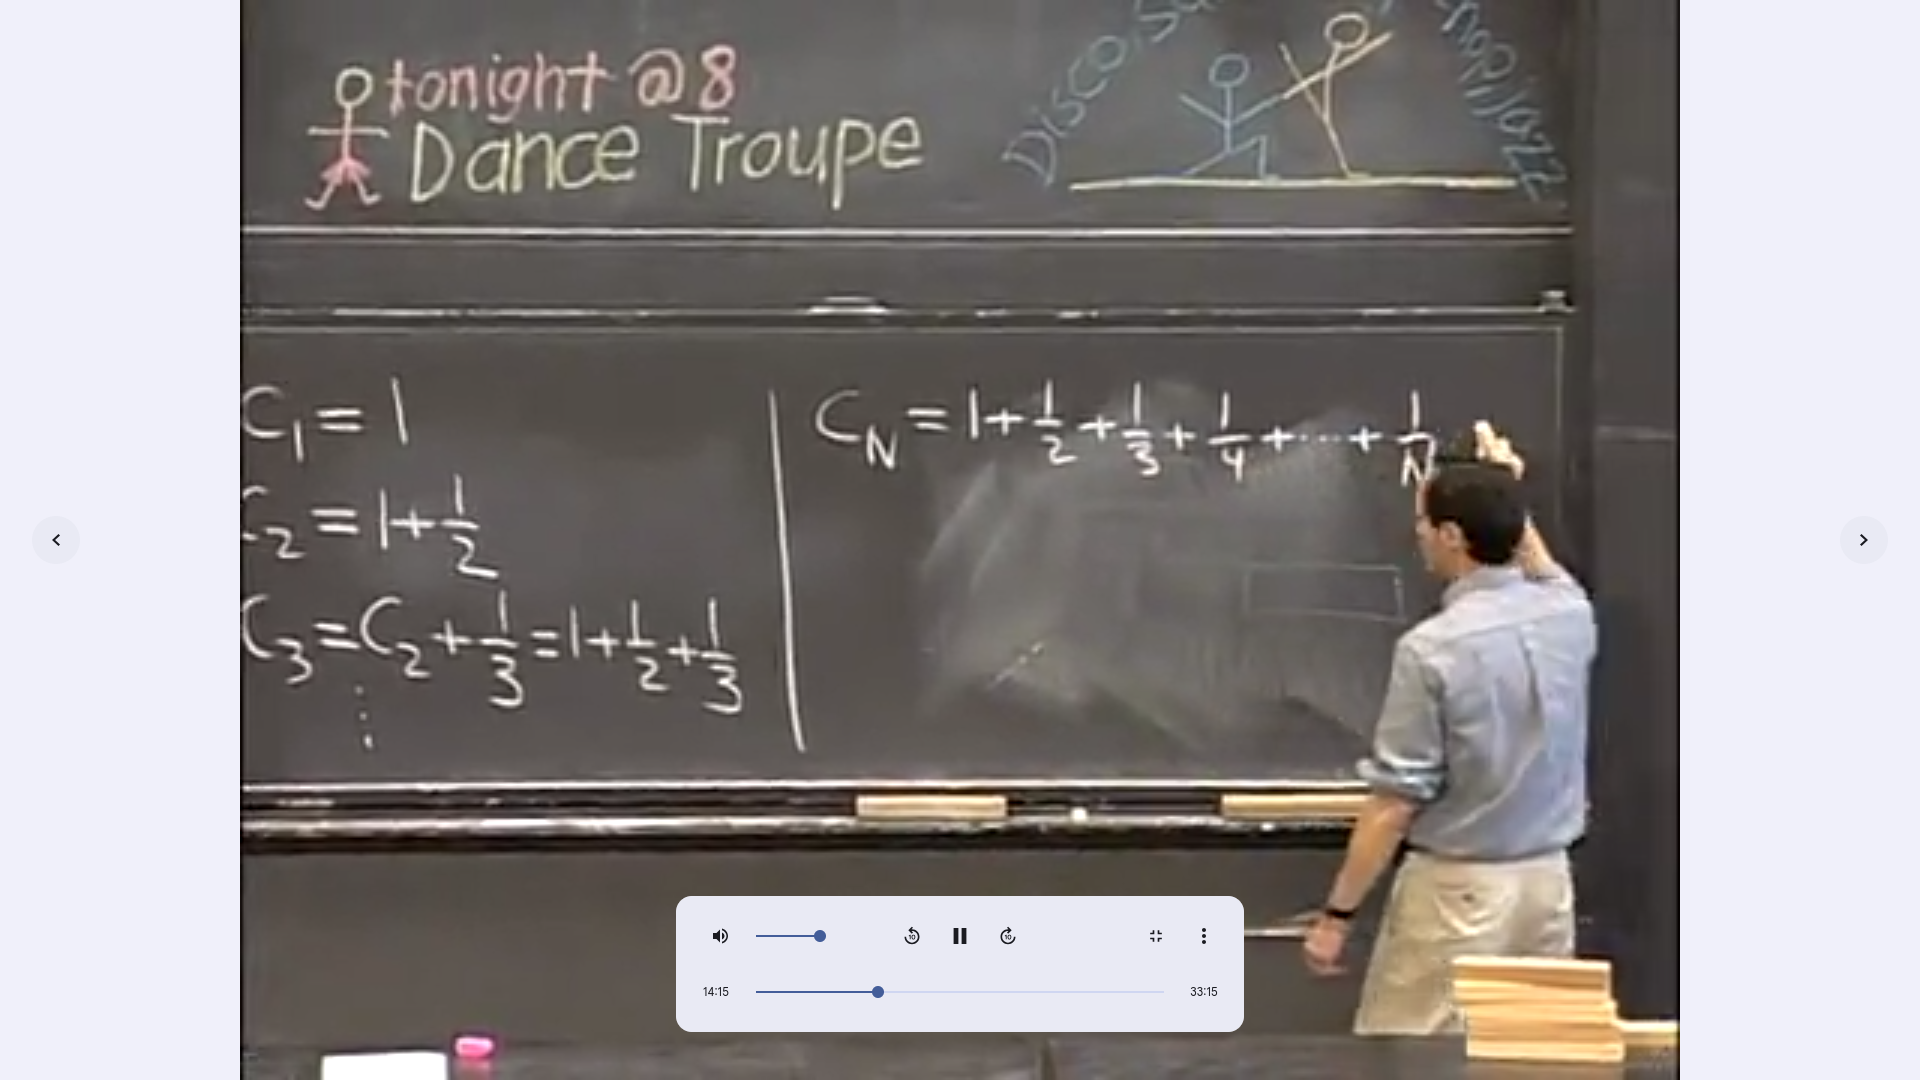 tonight @ 8
Dance Troupe
Disco
Jazz
C₁ = 1
C₂ = 1 + 1/2
C₃ = C₂ + 1/3 = 1 + 1/2 + 1/3
⋮
C_N = 1 + 1/2 + 1/3 + 1/4 + ⋯ + 1/N
10
10
14:15
33:15